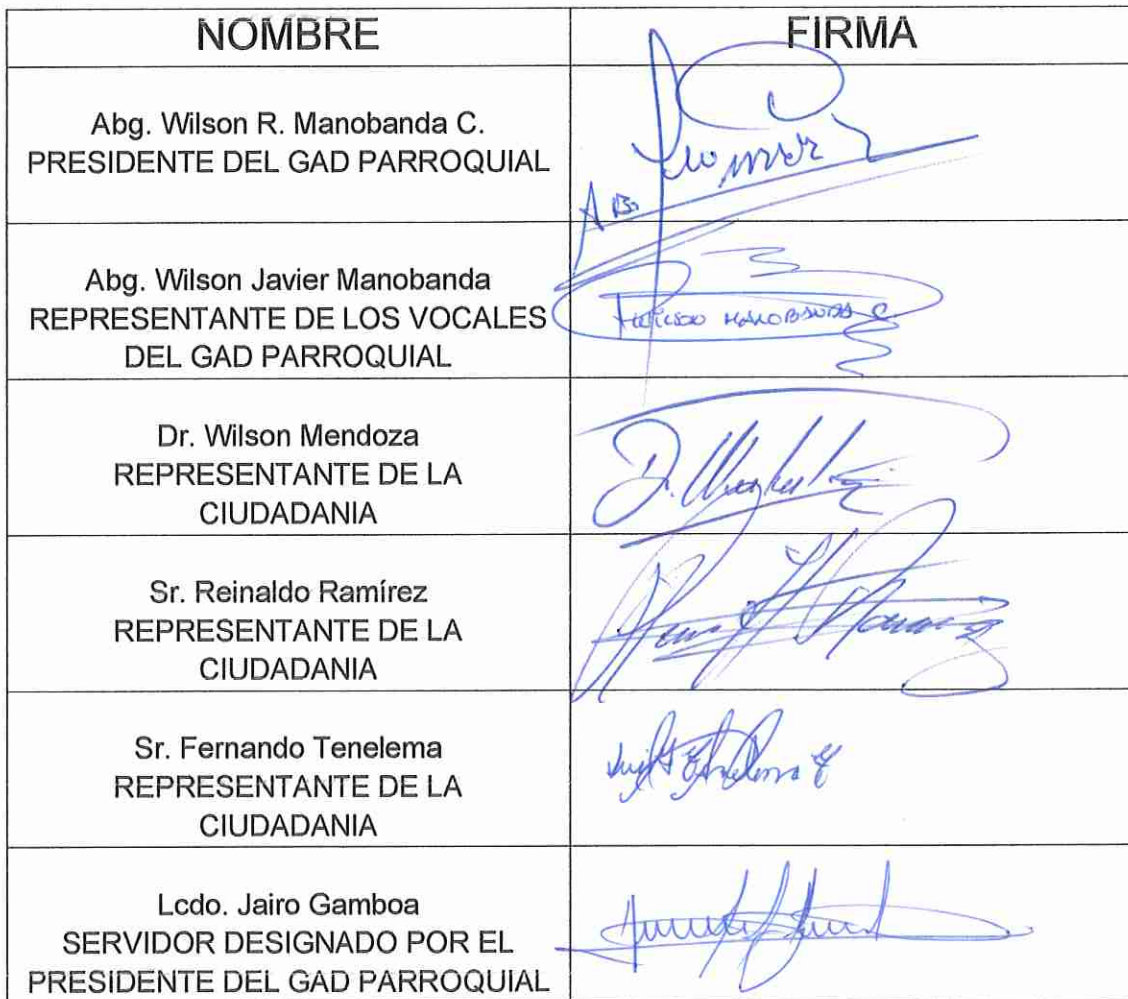 NOMBRE FIRMA
Abg. Wilson R. Manobanda C.
PRESIDENTE DEL GAD PARROQUIAL
Abg. Wilson Javier Manobanda
REPRESENTANTE DE LOS VOCALES
DEL GAD PARROQUIAL
Dr. Wilson Mendoza
REPRESENTANTE DE LA
CIUDADANIA
Sr. Reinaldo Ramírez
REPRESENTANTE DE LA
CIUDADANIA
Sr. Fernando Tenelema
REPRESENTANTE DE LA
CIUDADANIA
Lcdo. Jairo Gamboa
SERVIDOR DESIGNADO POR EL
PRESIDENTE DEL GAD PARROQUIAL